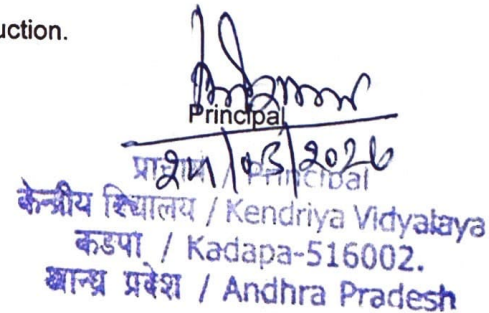 uction.
Principal
24/03/2026
प्राचार्य / Principal
केन्द्रीय विद्यालय / Kendriya Vidyalaya
कडपा / Kadapa-516002.
आन्ध्र प्रदेश / Andhra Pradesh